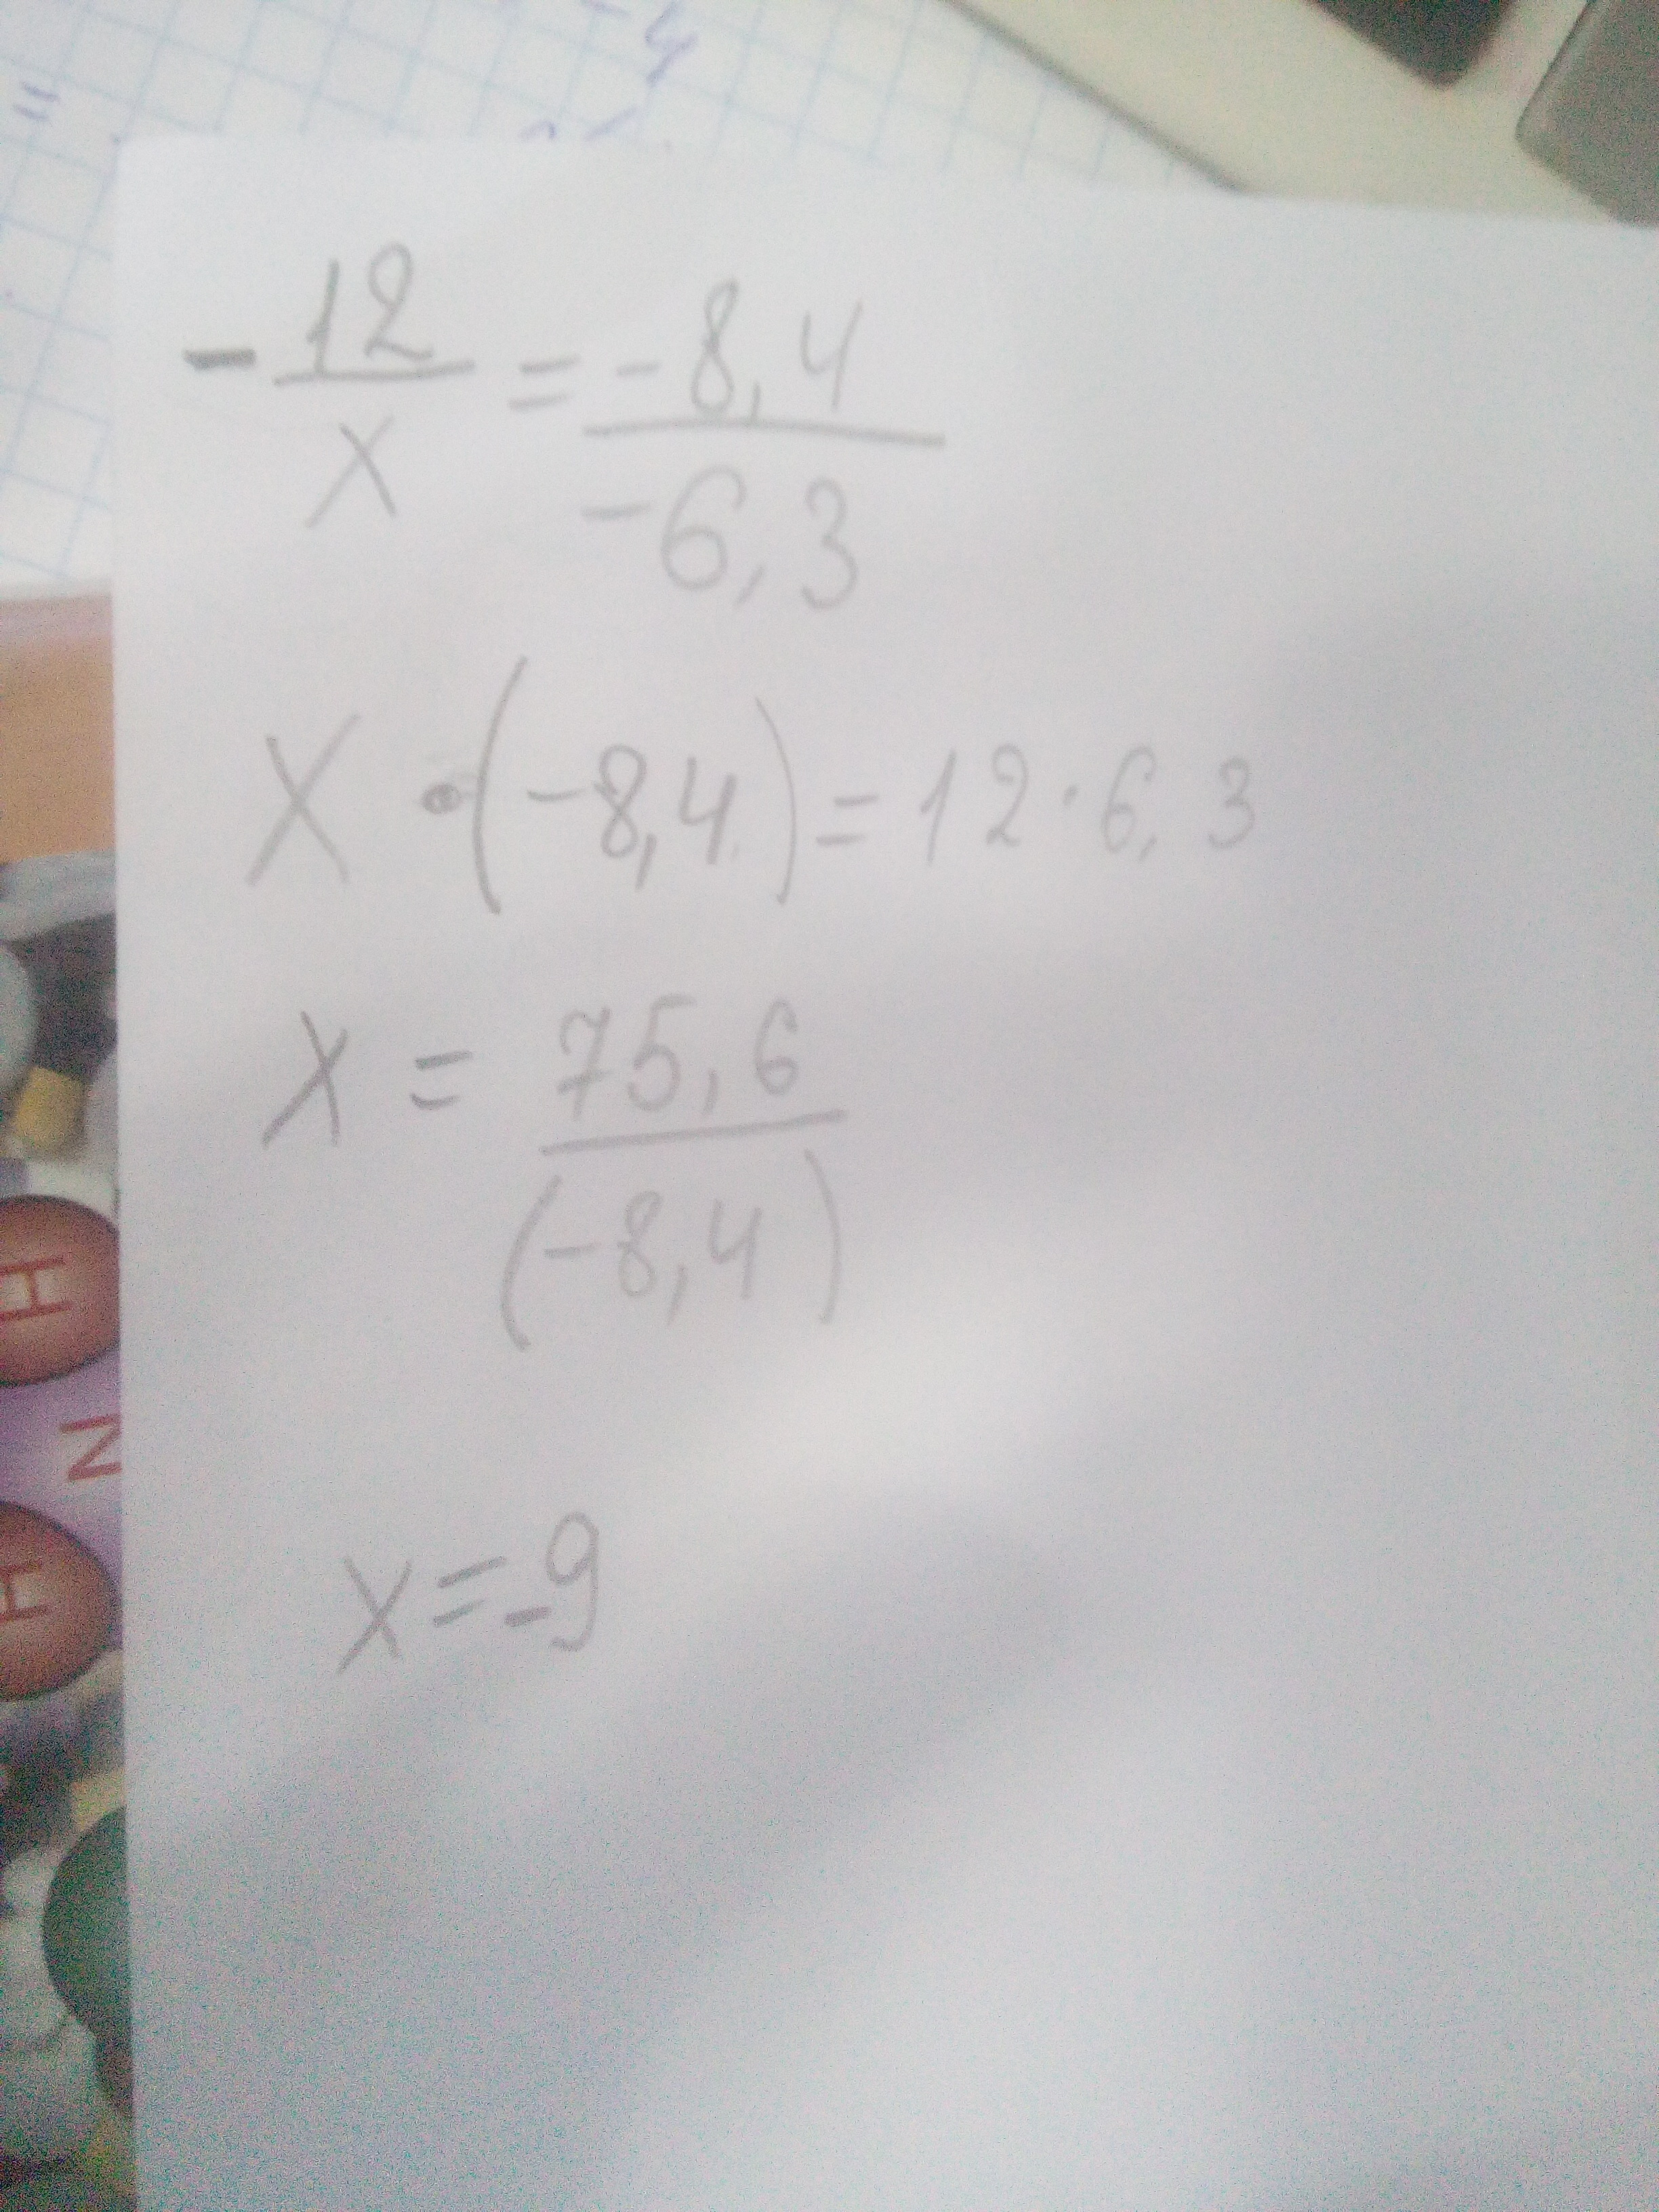 -4
=
-12/x = -8,4/-6,3
x · (-8,4) = 12 · 6,3
x = 75,6/(-8,4)
x = -9
H
N
H